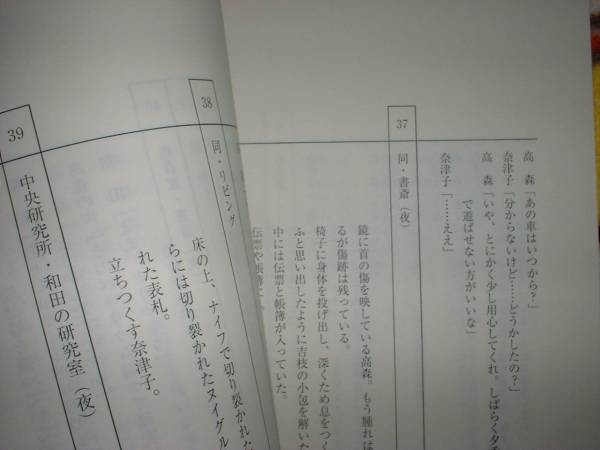 高　森「あの車はいつから？」
奈津子「分からないけど……どうかしたの？」
高　森「いや、とにかく少し用心してくれ。しばらく夕
で遊ばせない方がいいな」
奈津子「……ええ」
37　同・書斎（夜）
鏡に首の傷を映している高森。もう腫れは
るが傷跡は残っている。
椅子に身体を投げ出し、深くため息をつく
ふと思い出したように吉枝の小包を解いた
中には伝票と帳簿が入っていた。
伝票や帳簿
38　同・リビング
床の上、ナイフで切り裂かれた
らには切り裂かれたヌイグル
れた表札。
立ちつくす奈津子。
39　中央研究所・和田の研究室（夜）